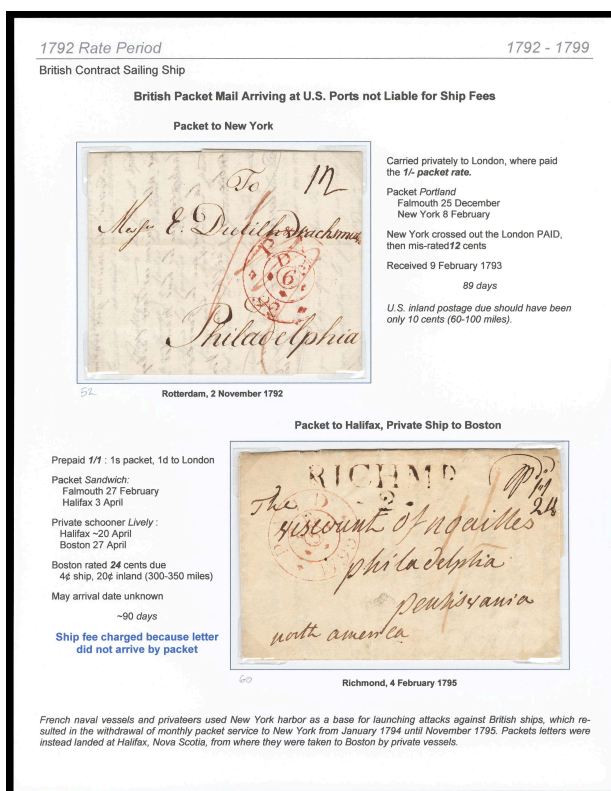 1792 Rate Period
1792 - 1799
British Contract Sailing Ship
British Packet Mail Arriving at U.S. Ports not Liable for Ship Fees
Packet to New York
To
12
Messrs E. Dutilh
Philadelphia
52
Rotterdam, 2 November 1792
Carried privately to London, where paid
the 1/- packet rate.
Packet Portland
Falmouth 25 December
New York 8 February
New York crossed out the London PAID,
then mis-rated12 cents
Received 9 February 1793
89 days
U.S. inland postage due should have been
only 10 cents (60-100 miles).
Packet to Halifax, Private Ship to Boston
Prepaid 1/1 : 1s packet, 1d to London
Packet Sandwich:
Falmouth 27 February
Halifax 3 April
Private schooner Lively :
Halifax ~20 April
Boston 27 April
Boston rated 24 cents due
4¢ ship, 20¢ inland (300-350 miles)
May arrival date unknown
~90 days
Ship fee charged because letter
did not arrive by packet
RICHMD
24
The
viscount of noailles
philadelphia
pensisvania
north america
60
Richmond, 4 February 1795
French naval vessels and privateers used New York harbor as a base for launching attacks against British ships, which re-
sulted in the withdrawal of monthly packet service to New York from January 1794 until November 1795. Packets letters were
instead landed at Halifax, Nova Scotia, from where they were taken to Boston by private vessels.